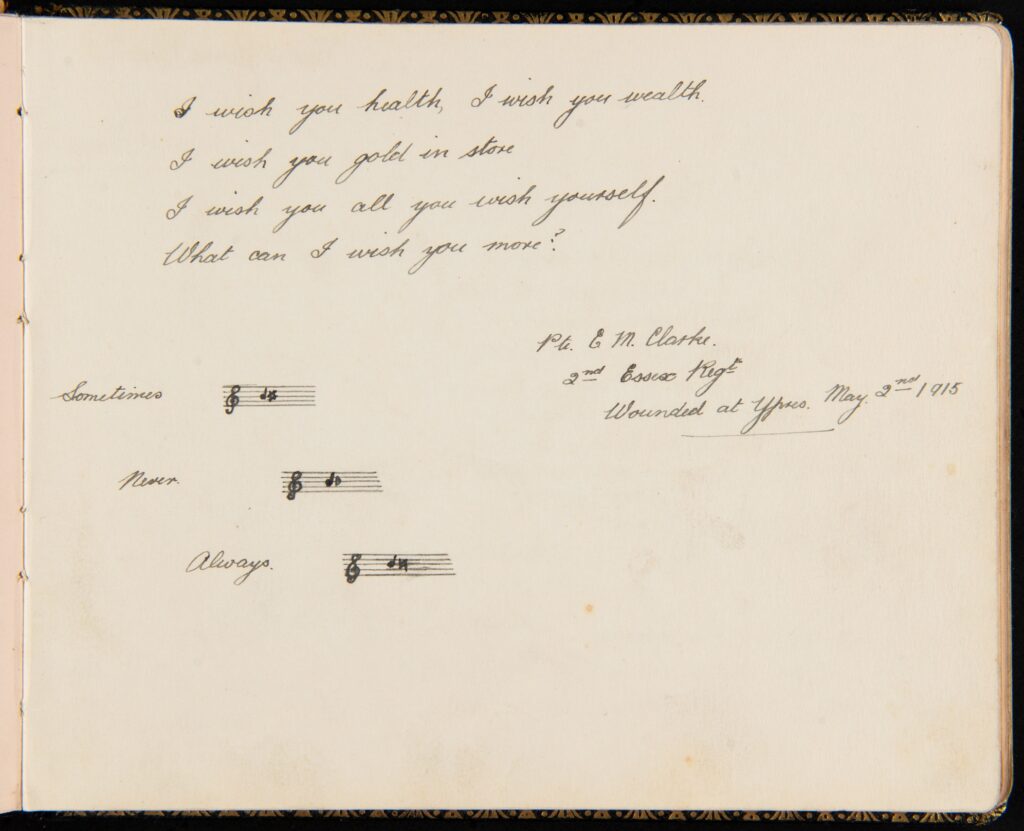 I wish you health, I wish you wealth.
I wish you gold in store
I wish you all you wish yourself.
What can I wish you more?
Pte. E M. Clarke.
2nd Essex Regt
Wounded at Ypres. May. 2nd 1915
Sometimes
Never.
Always.